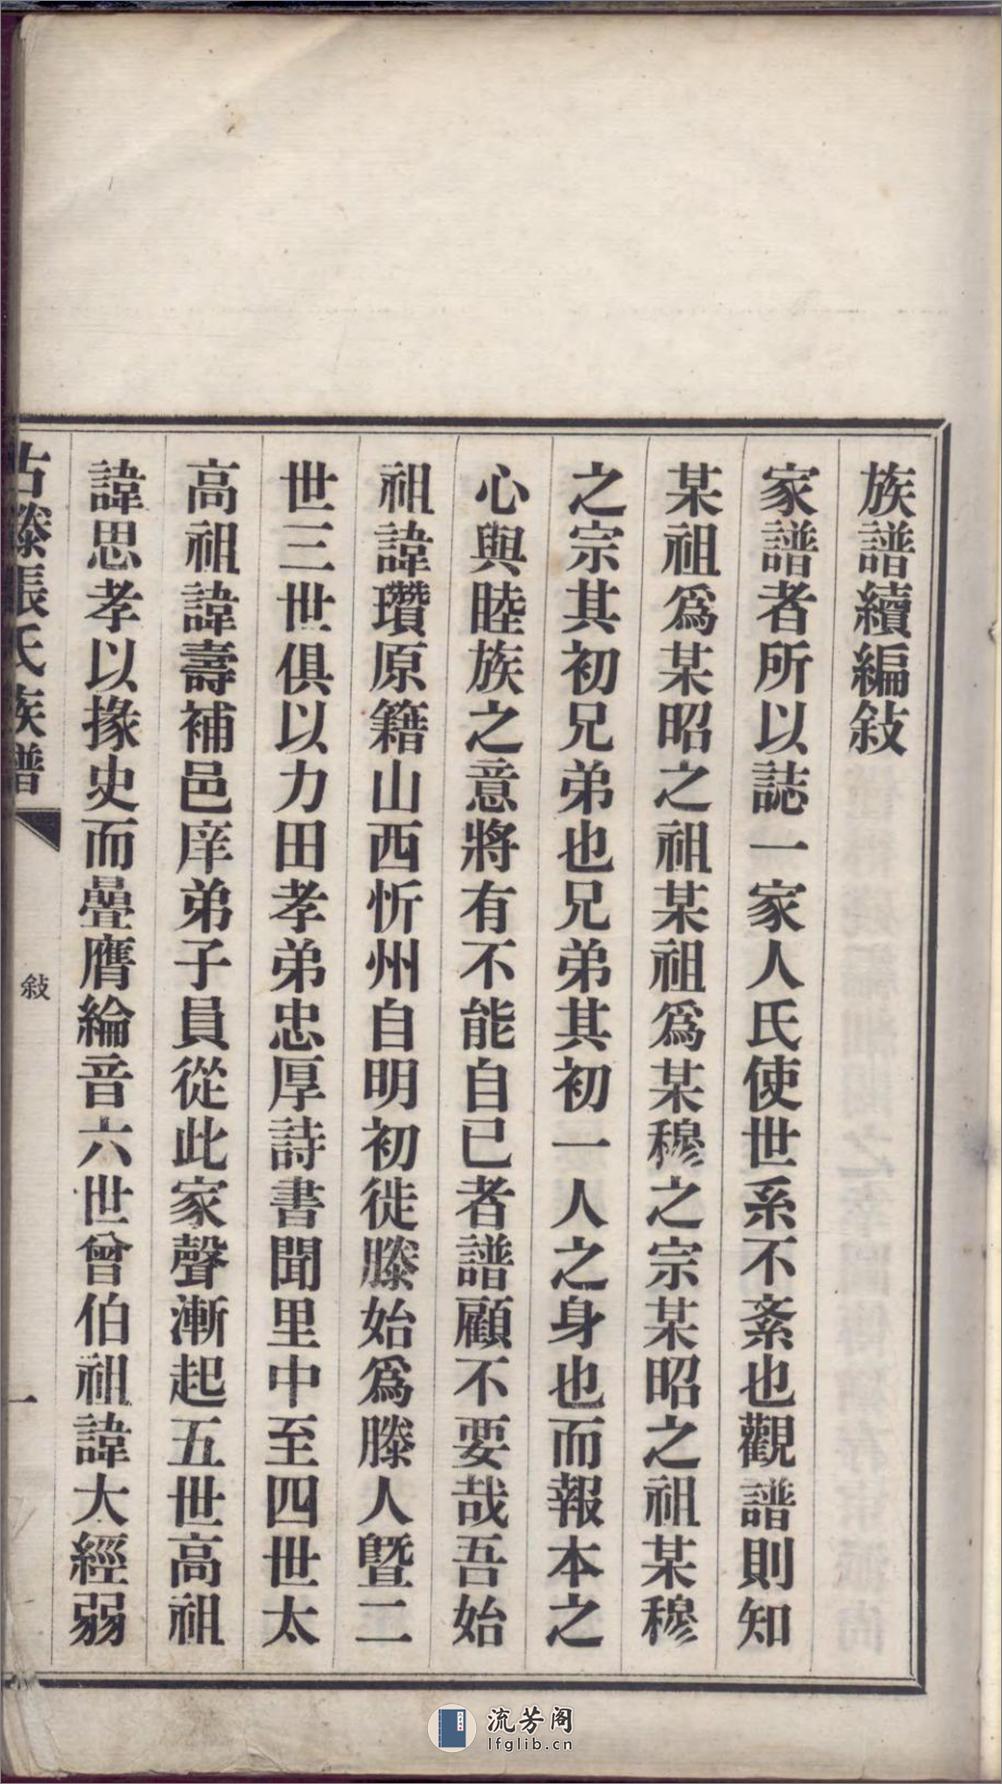 族譜續編敍
家譜者所以誌一家人氏使世系不紊也觀譜則知
某祖爲某昭之祖某祖爲某穆之宗某昭之祖某穆
之宗其初兄弟也兄弟其初一人之身也而報本之
心與睦族之意將有不能自已者譜顧不要哉吾始
祖諱瓚原籍山西忻州自明初徙滕始爲滕人曁二
世三世俱以力田孝弟忠厚詩書聞里中至四世太
高祖諱壽補邑庠弟子員從此家聲漸起五世高祖
諱思孝以掾史而曡膺綸音六世曾伯祖諱大經弱
古滕張氏族譜
敍
一
流芳阁
lfglib.cn